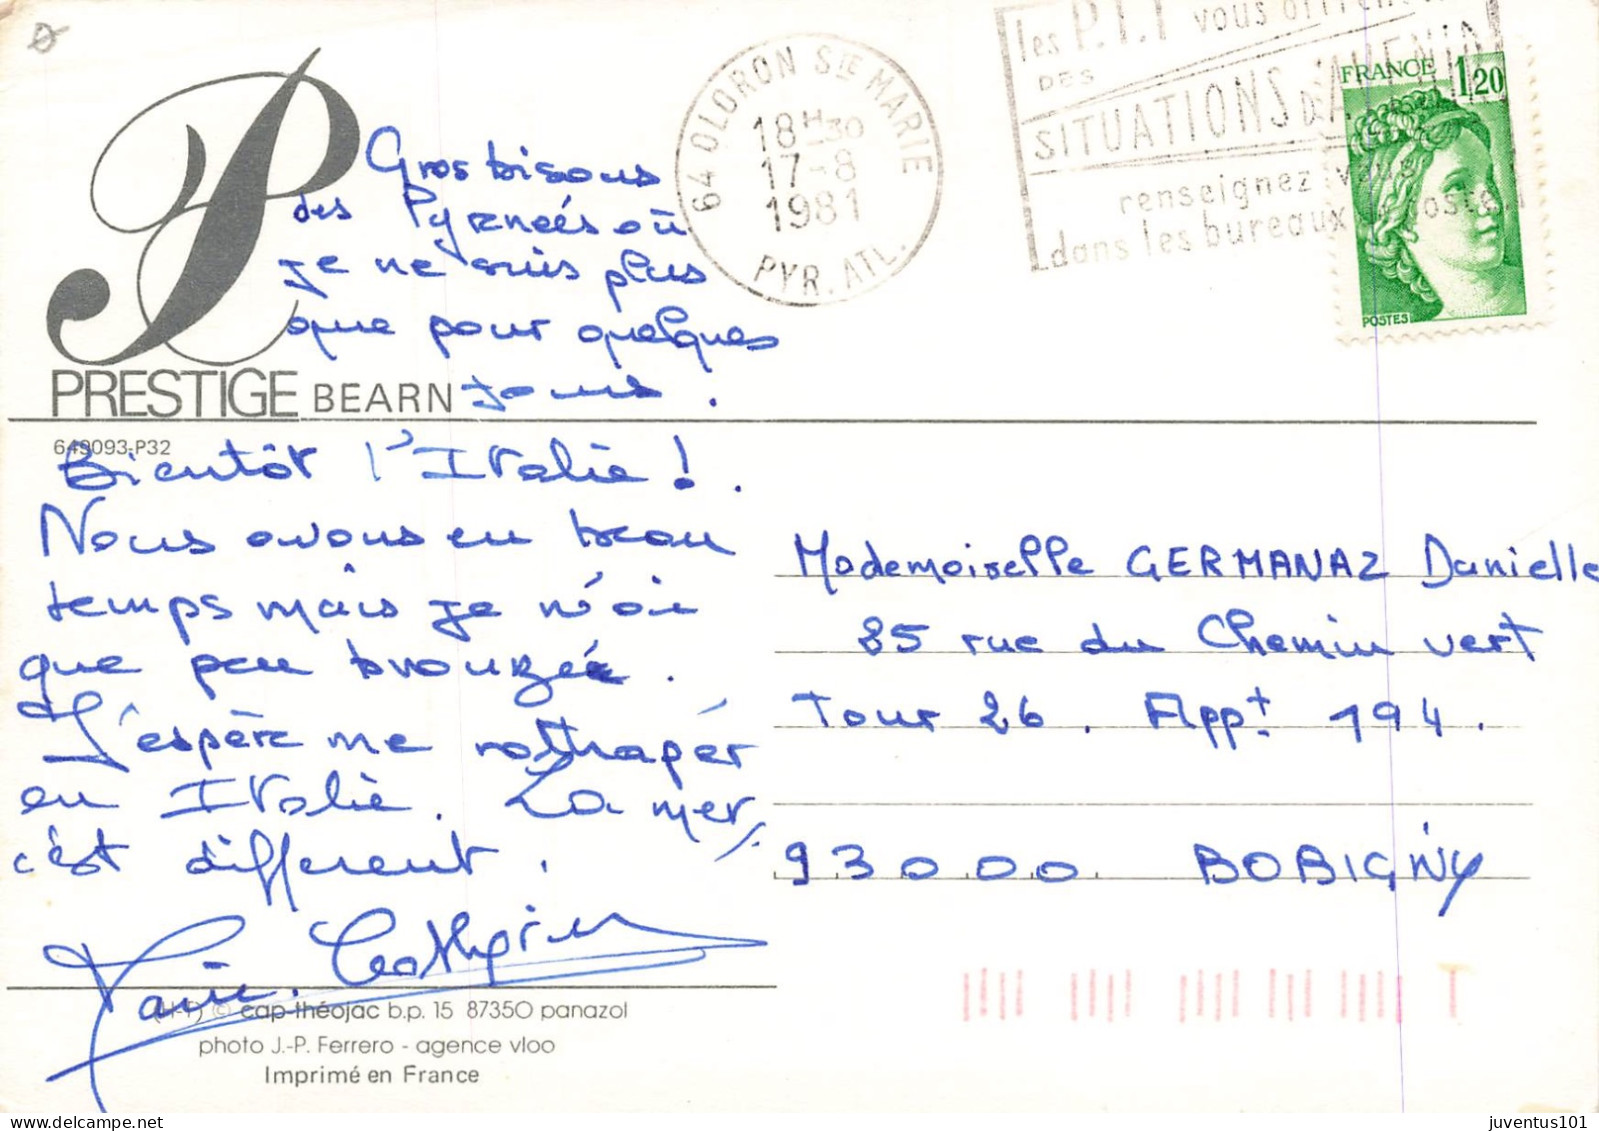 Gros bisous
des Pyrneés où
je ne suis plus
que pour quelques
jours.
PRESTIGE BEARN
649093-P32
Bientôt l'Italie !.
Nous avons eu beau
temps mais je n'ai
que peu bronzée.
J'espère me rattraper
en Italie. La mer,
c'est différent.
Marie. Catherine
(H-P) © cap-théojac b.p. 15 87350 panazol
photo J.-P. Ferrero - agence vloo
Imprimé en France
64 OLORON STE MARIE
18H30
17-8
1981
PYR. ATL.
les P.T.T vous offrent
DES
SITUATIONS D'AVENIR
renseignez vous
dans les bureaux de poste
FRANCE 1,20
POSTES
Mademoiselle GERMANAZ Danielle
85 rue du Chemin vert
Tour 26. Appt. 194.
93000 BOBIGNY
juventus101